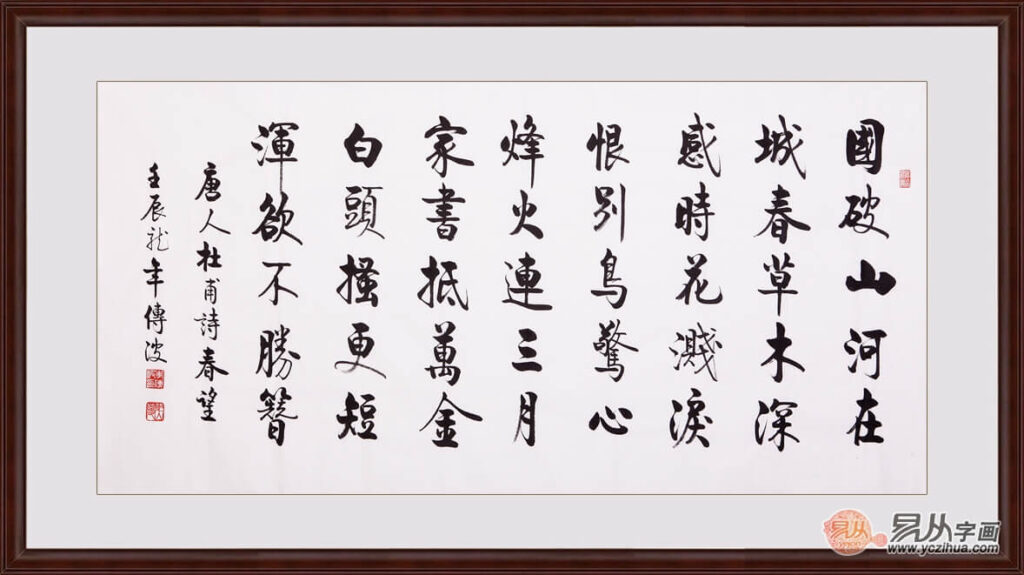 國破山河在
城春草木深
感時花濺淚
恨别鳥驚心
烽火連三月
家書抵萬金
白頭搔更短
渾欲不勝簪
唐人杜甫詩春望
壬辰龙年傳波
易从字画
www.yczihua.com